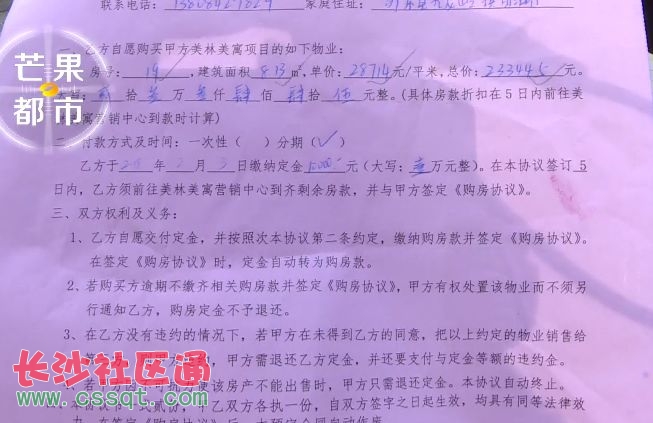 联系电话: 家庭住址:
一、乙方自愿购买甲方美林美寓项目的如下物业:
芒果都市
房号: 19 ,建筑面积 8.13 ㎡,单价: 28714 元/平米,总价: 233445 元。
拾 万 仟 肆 佰 肆 拾 伍 元整。(具体房款折扣在5日内前往美
寓营销中心到款时计算)
二、付款方式及时间:一次性( )分期(✓)
乙方于 年 月 日缴纳定金 10000 元(大写: 壹 万元整)。在本协议签订 5
日内,乙方须前往美林美寓营销中心到齐剩余房款,并与甲方签定《购房协议》。
三、双方权利及义务:
1、乙方自愿交付定金,并按照次本协议第二条约定,缴纳购房款并签定《购房协议》。
在签定《购房协议》时,定金自动转为购房款。
2、若购买方逾期不缴齐相关购房款并签定《购房协议》,甲方有权处置该物业而不须另
行通知乙方,购房定金不予退还。
3、在乙方没有违约的情况下,若甲方在未得到乙方的同意,把以上约定的物业销售给
甲方需退还乙方定金,并还要支付与定金等额的违约金。
长沙社区通
使该房产不能出售时,甲方只需退还定金。本协议自动终止。
www.cssqt.com
本协议书一式贰份,甲乙双方各执一份,自双方签字之日起生效,均具有同等法律效